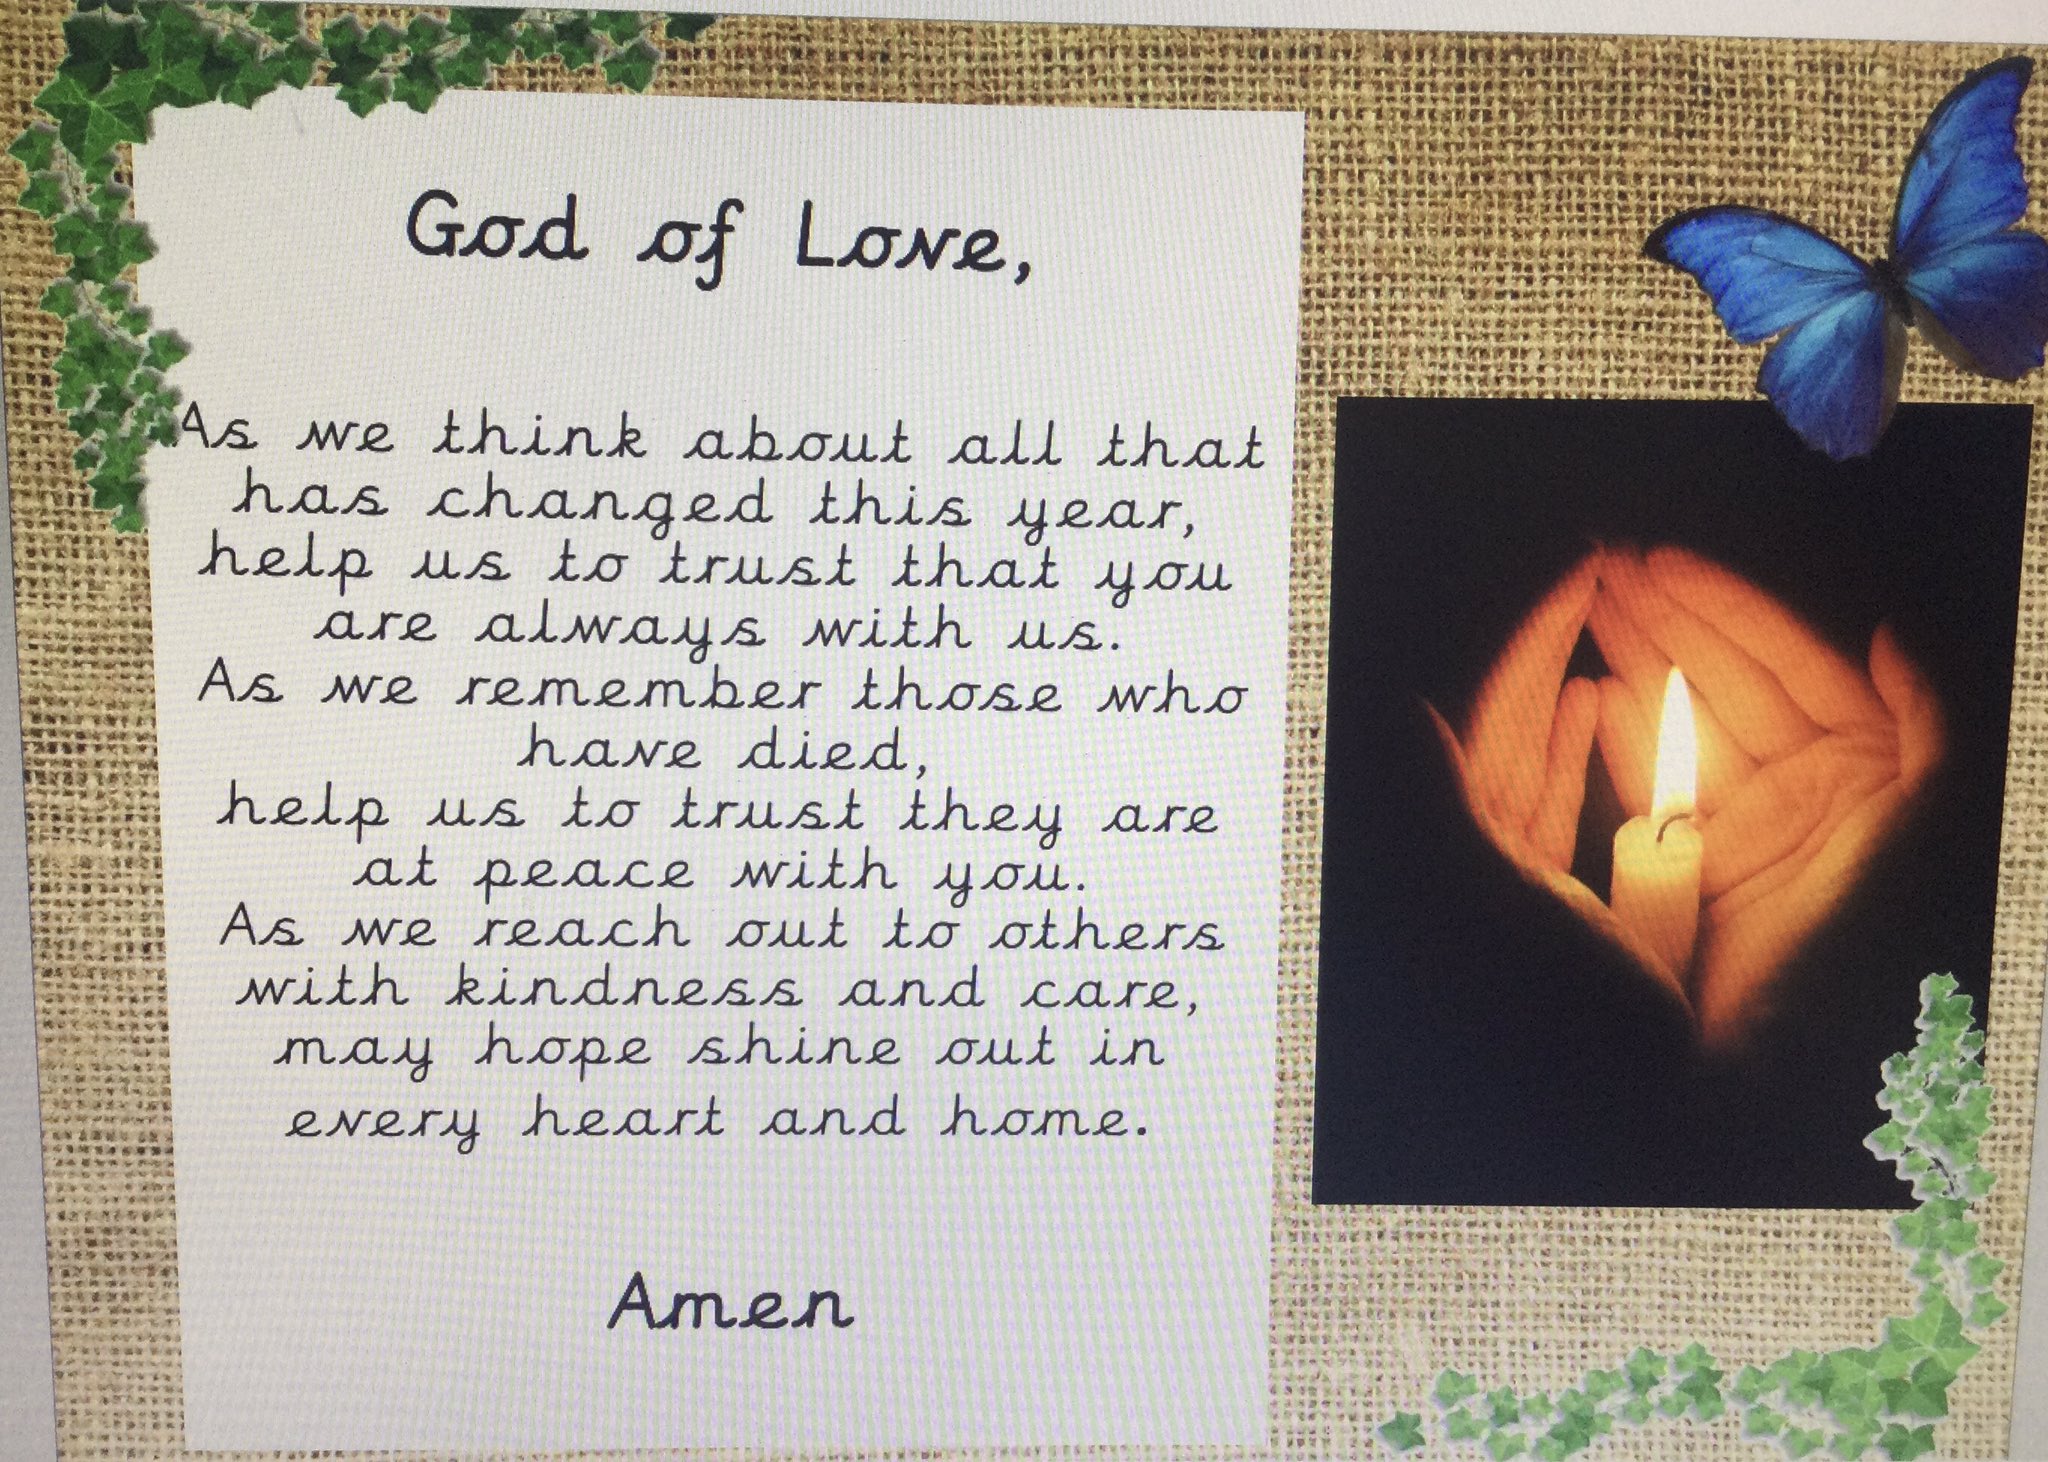 God of Love,
As we think about all that
has changed this year,
help us to trust that you
are always with us.
As we remember those who
have died,
help us to trust they are
at peace with you.
As we reach out to others
with kindness and care,
may hope shine out in
every heart and home.
Amen